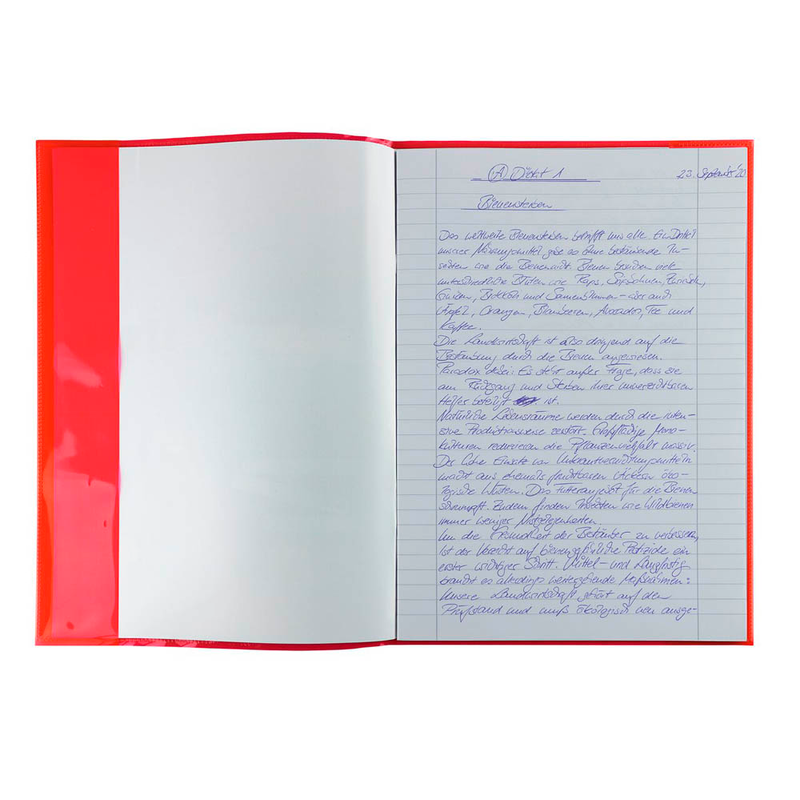 (A) Diktat 1 23. September '20
Bienensterben
Das weltweite Bienensterben betrifft uns alle. Ein Drittel
unserer Nahrungsmittel gäbe es ohne bestäubende In-
sekten wie den Bienen nicht. Bienen bestäuben viele
unterschiedliche Blüten wie Raps, Sojabohnen,
Gurken, Brokkoli und Sonnenblumen – aber auch
Äpfel, Orangen, Blaubeeren, Avocados, Tee und
Kaffee.
Die Landwirtschaft ist also dringend auf die
Bestäubung durch die Bienen angewiesen.
Paradox dabei: Es steht außer Frage, dass sie
am Rückgang und Sterben ihrer unverzichtbaren
Helfer beteiligt ist.
Natürliche Lebensräume werden durch die inten-
sive Produktionsweise zerstört. Großflächige Mono-
kulturen reduzieren die Pflanzenvielfalt massiv.
Der hohe Einsatz von Unkrautvernichtungsmitteln
macht aus ehemals fruchtbaren Äckern ökolo-
gische Wüsten. Das Futterangebot für die Bienen
schrumpft. Zudem finden Insekten wie Wildbienen
immer weniger Nistgelegenheiten.
Um die Gesundheit der Bestäuber zu verbessern,
ist der Verzicht auf bienengefährliche Pestizide ein
erster wichtiger Schritt. Mittel- und langfristig
braucht es allerdings weitergehende Maßnahmen:
Unsere Landwirtschaft gehört auf den
Prüfstand und muß ökologisch neu ausge-